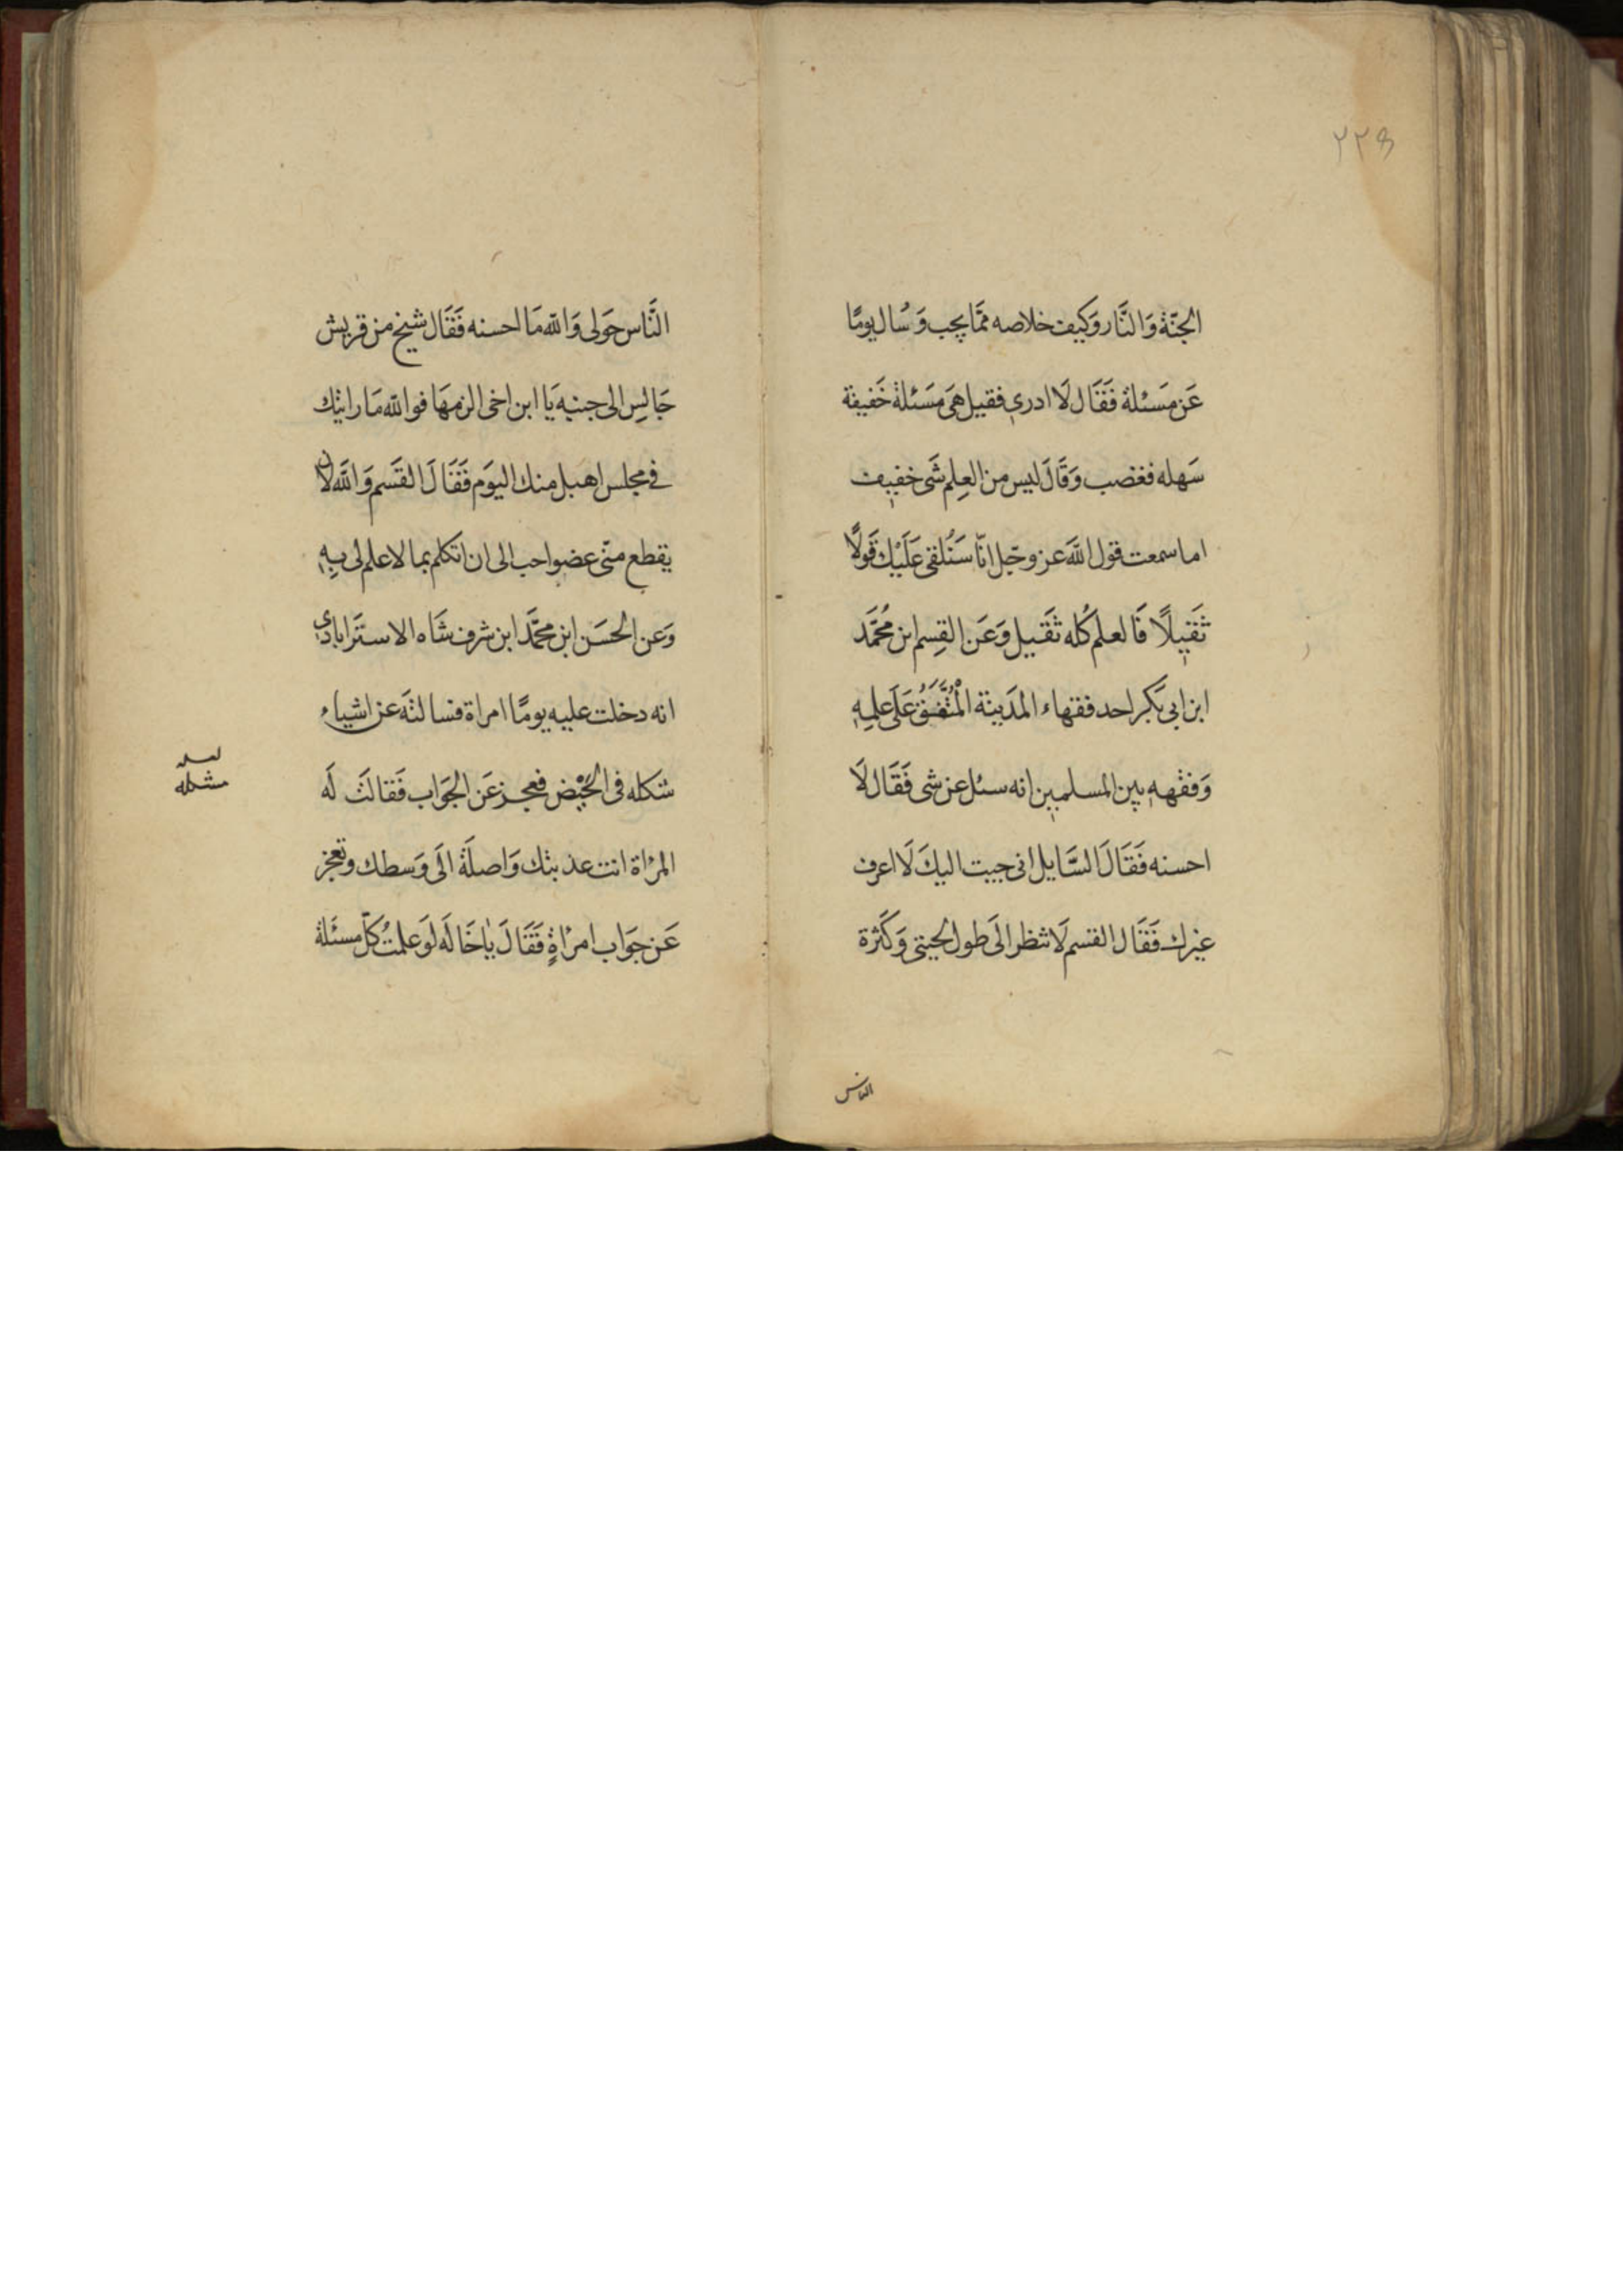 ٢٢٥
الجَنّة وَالنَّار وَكيف خلاصه ممَّا يجب وَسُال يومًا
عَن مَسَئلة فَقَال لَا ادرى فقيل هىَ مَسَئلة خَفيفة
سَهله فغضب وَقَالَ ليس من العِلم شَى خفيف
اما سمعت قول اللهَ عز وجَل انّا سَنُلقى عَلَيْكَ قَولًا
ثَقيلًا فَالعلم كُله ثَقيل وَعَن القسِم ابن مُحَمَّد
ابن ابى بَكر احد فقهاء المدَينة الْمُتَّفَقُ عَلَى علمِهِ
وَفقههِ بين المسلمين انه سئل عن شى فَقَال لَا
احسنه فَقَالَ السَّايل انى جيت اليكَ لَا اعرف
غيرك فَقَال القسم لَا تنظر الَى طول لحيتى وَكَثرة
الناس
النَّاس حَولى وَالله مَا احسنه فَقَال شيخ من قريش
جَالسِ الى جنبه يَا ابن اخى الزمهَا فوالله مَا رايتك
فى مجلس اهبل منك اليَوم فَقَالَ القَسم وَاللهَ لان
يقطع منّى عضو احب الى ان اتكلم بما لا علم لى بِهِ
وَعن الحسَن ابن محمَّد ابن شرف شَاه الاستَرابادى
انه دخلت عليه يومًا امراة فسالتهَ عن اشياء
شكله فى الحَيْض فعجز عَن الجَوَاب فَقالَت لَه
لعله
مشكله
المرْاة انت عذبتك وَاصلَة الَى وَسطك وتعجز
عَن جَوَاب امرْاةٍ فَقَالَ يٰا خَالَه لَو علمتُ كلّ مسئَلة